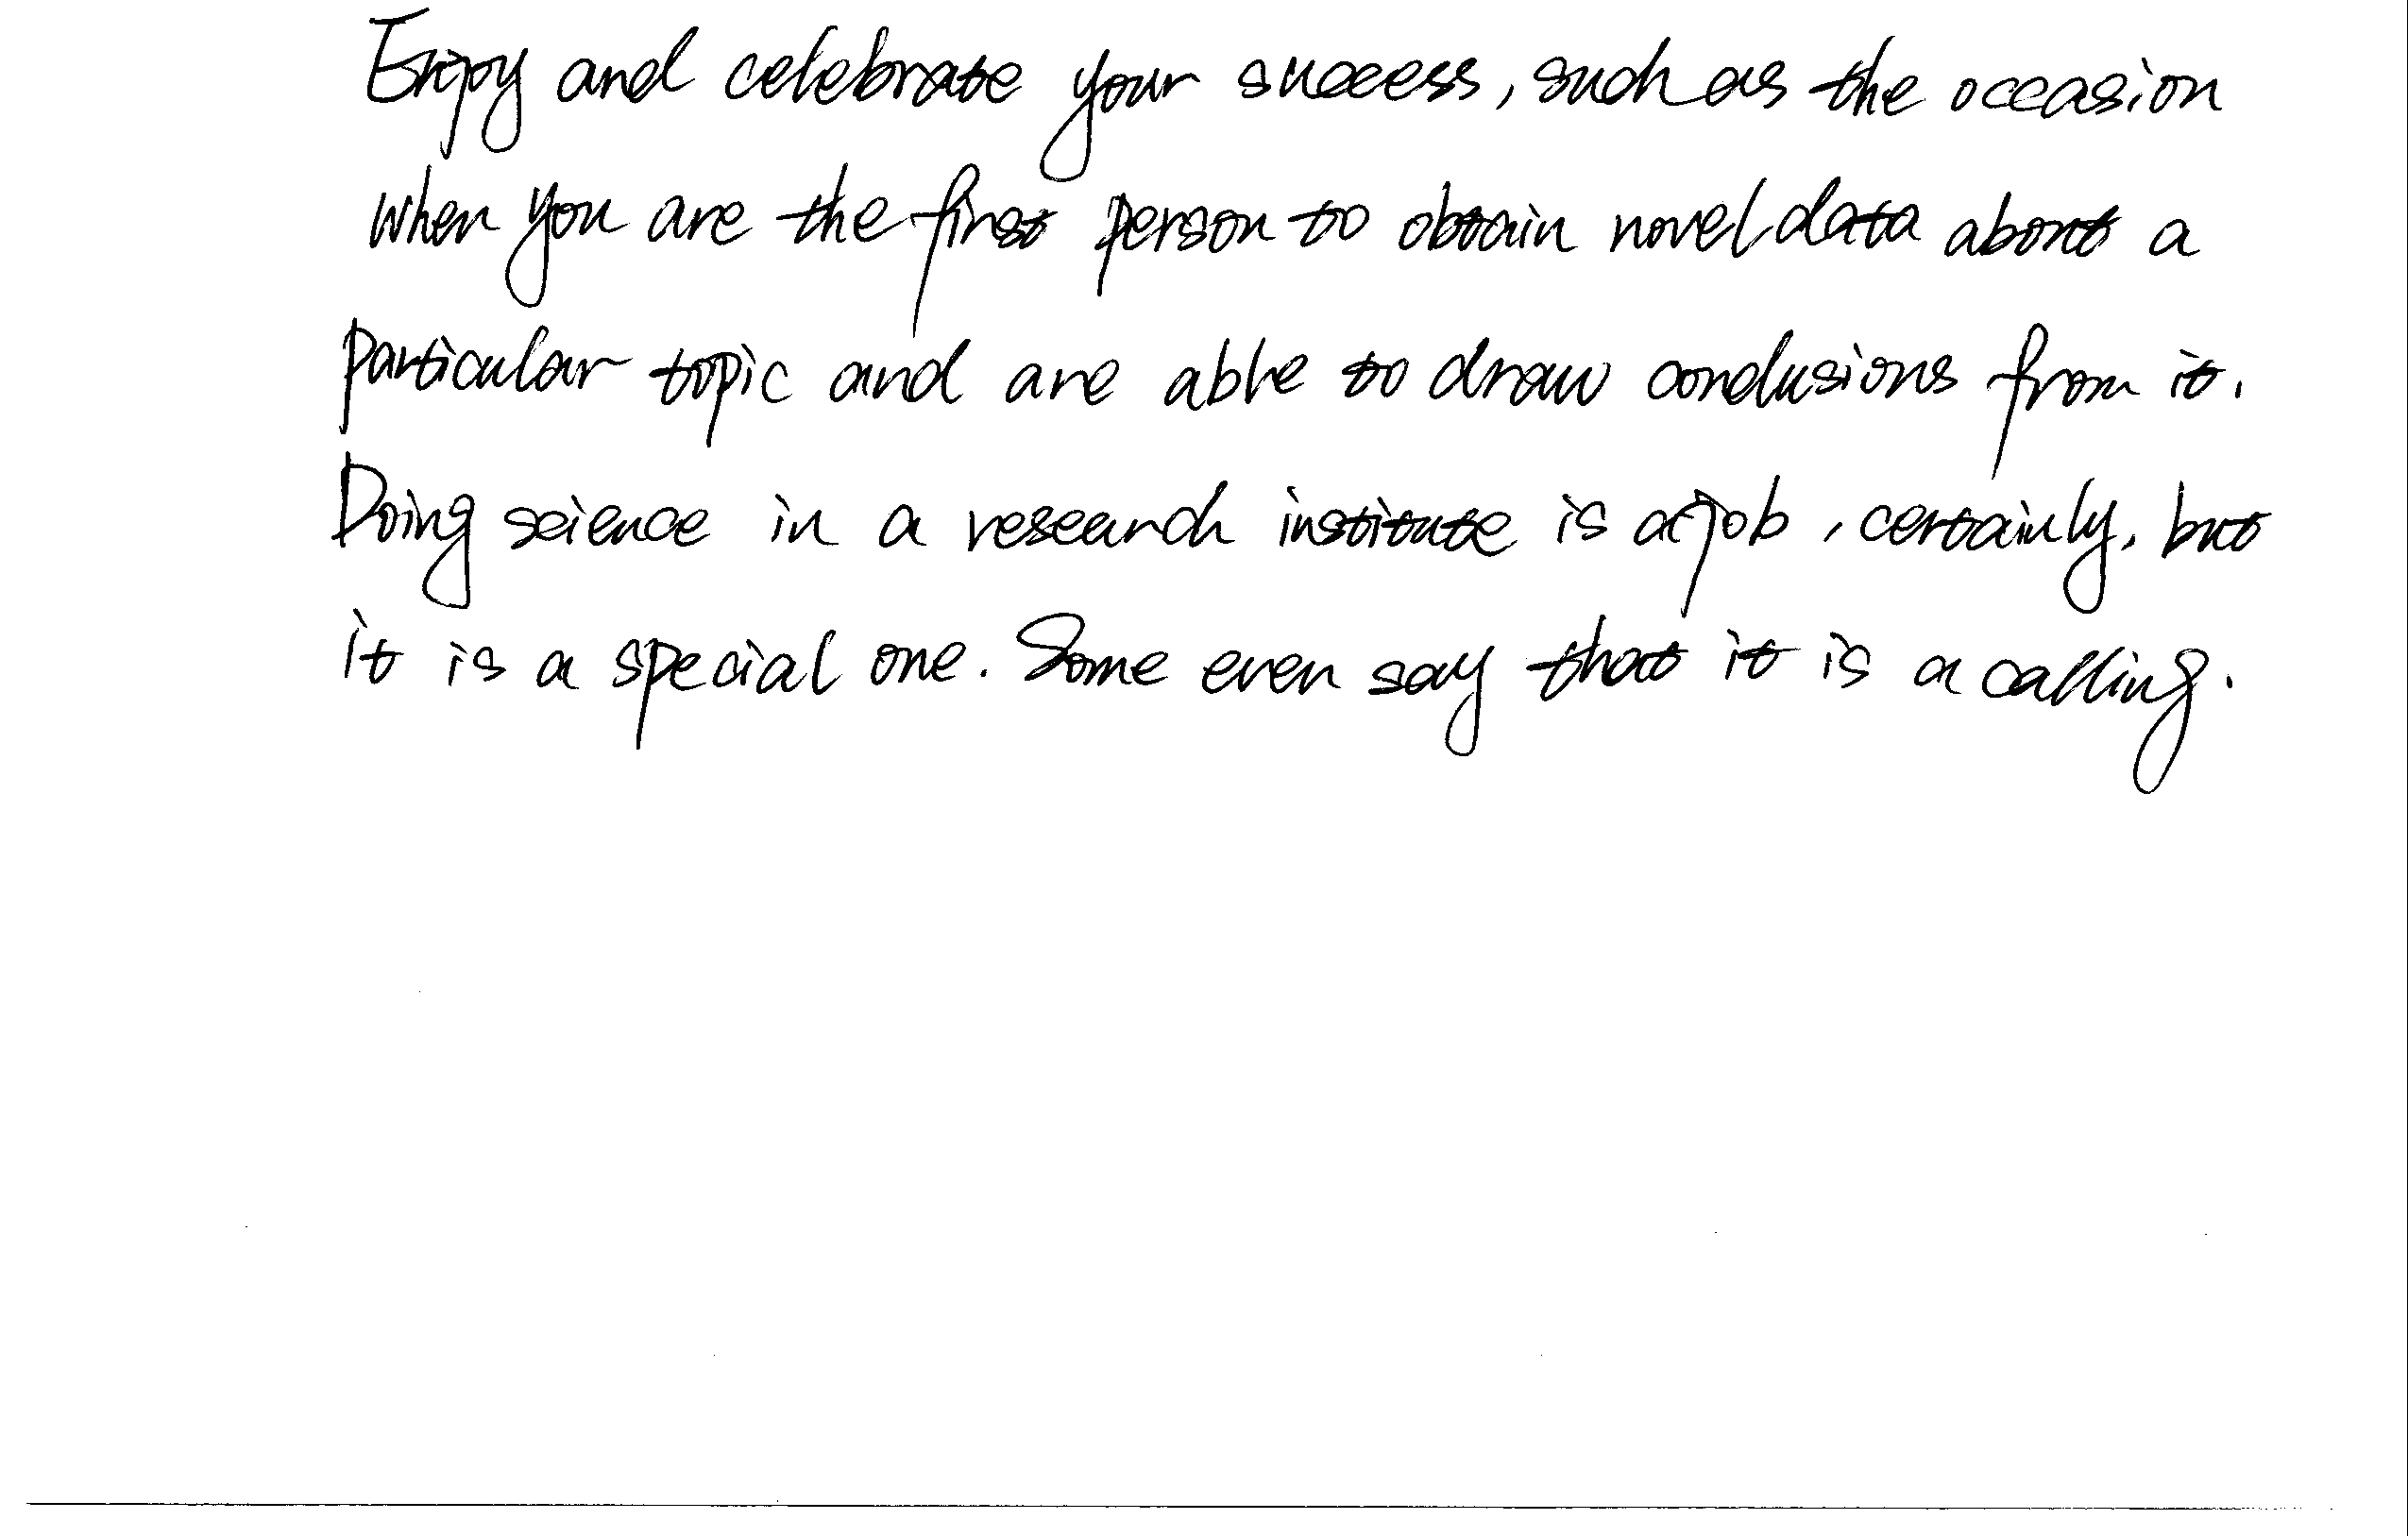 Enjoy and celebrate your success, such as the occasion
when you are the first person to obtain novel data about a
particular topic and are able to draw conclusions from it.
Doing science in a research institute is a job, certainly, but
it is a special one. Some even say that it is a calling.